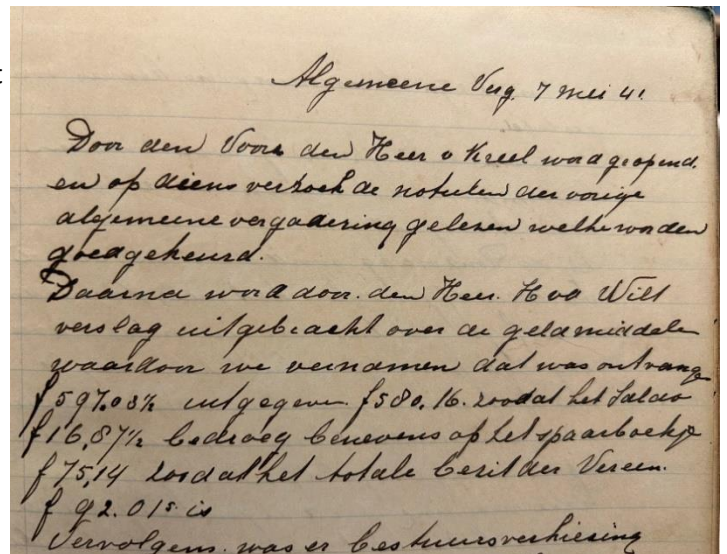 Algemeene Verg. 7 Mei 41.
Door den Voorz den Heer v Kreel word geopend.
en op diens verzoek de notulen der vorige
algemeene vergadering gelezen welke worden
goedgekeurd.
Daarna word door den Heer. H vd Wilt
verslag uitgebracht over de geldmiddelen
waardoor we vernamen dat was ontvangen
f 597.03½ uitgegeven f 580.16. zoodat het Saldo
f 16,87½ bedroeg benevens op het spaarboekje
f 75,14 zoodat het totale bezit der Vereen.
f 92.01⁵ is
Vervolgens was er bestuursverkiesing